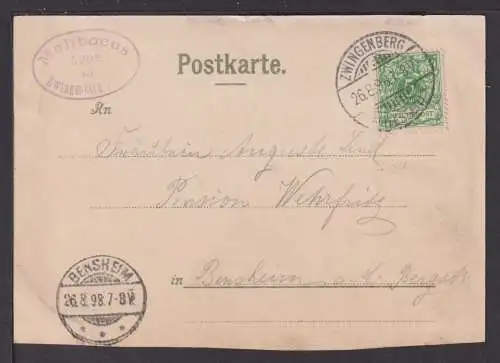 Melibocus
Postkarte.
ZWINGENBERG
26.8.9
An
Fräulein Auguste
Pension Wehrfritz
in Bensheim a. d. Bergstr
BENSHEIM
26.8.98.7-8N